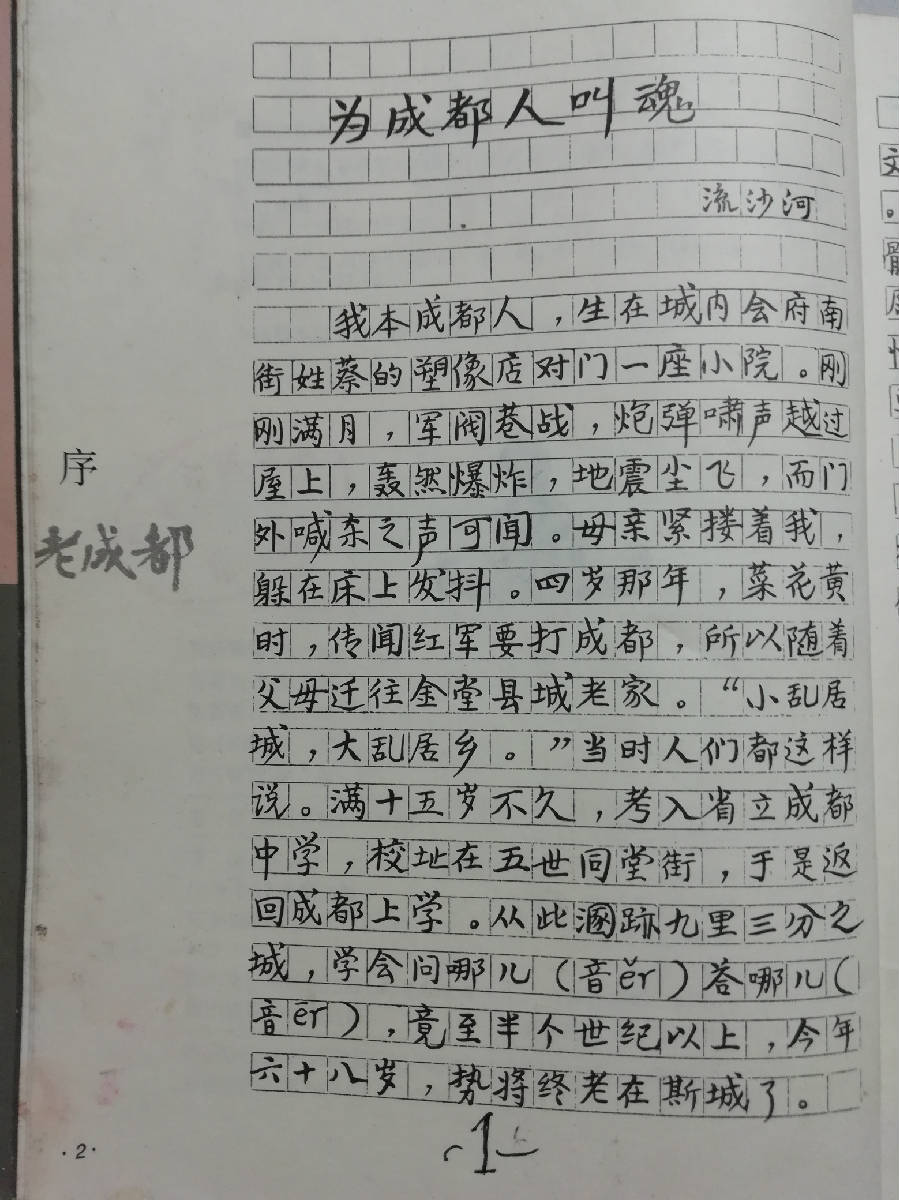 为成都人叫魂
流沙河
我本成都人，生在城内会府南
街姓蔡的塑像店对门一座小院。刚
刚满月，军阀巷战，炮弹啸声越过
屋上，轰然爆炸，地震尘飞，而门
外喊杀之声可闻。母亲紧搂着我，
躲在床上发抖。四岁那年，菜花黄
时，传闻红军要打成都，所以随着
父母迁往金堂县城老家。“小乱居
城，大乱居乡。”当时人们都这样
说。满十五岁不久，考入省立成都
中学，校址在五世同堂街，于是返
回成都上学。从此溷跡九里三分之
城，学会问哪儿（音ěr）答哪儿（
音ēr），竟至半个世纪以上，今年
六十八岁，势将终老在斯城了。
序
老成都
1
·2·